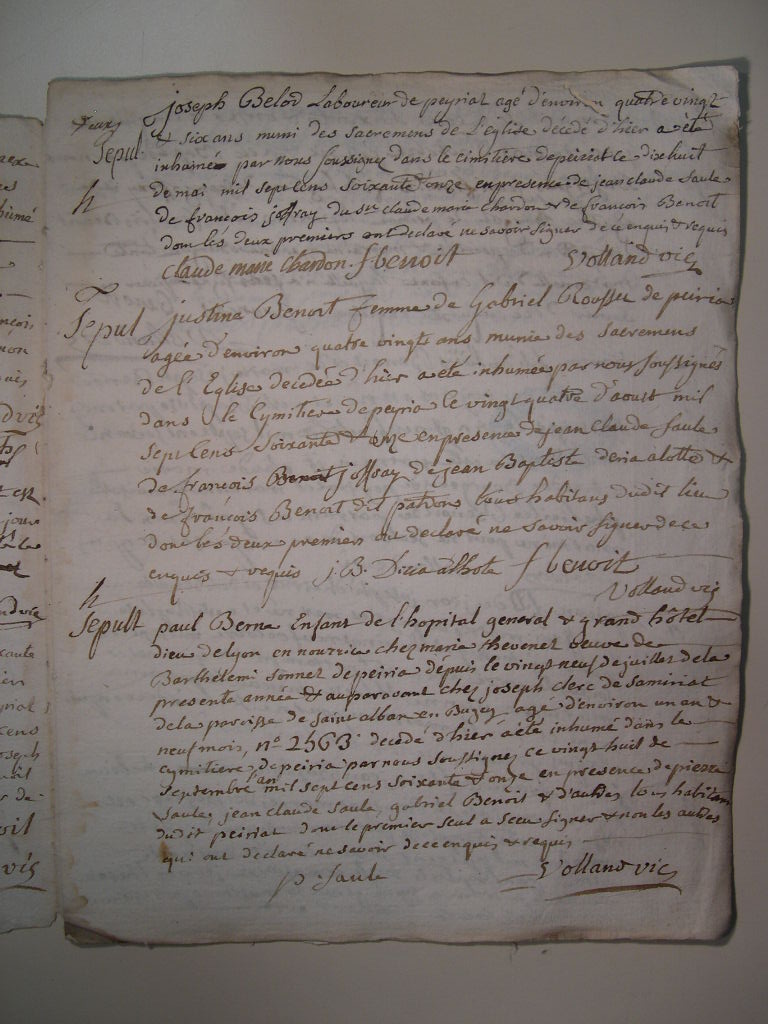 joseph Belod Laboureur de peyriat agé d'environ quatre vingt
Sepul & six ans muni des sacremens de L'eglise décédé d'hier a été
inhumé par nous soussignez dans le cimitière de peiriat ce dixhuit
de mai mil sept cens soixante & onze en presence de jean claude saule
de françois joffray du sr claude marie Chardon & de françois Benoit
dont les deux premiers ont declaré ne savoir signer de ce enquis & requis
claude marie Chardon. f benoit Volland vic
Sepul justina Benoit femme de Gabriel Rousset de peiria
agée d'environ quatre vingts ans munie des sacremens
de l'Eglise decedée d'hier a été inhumée par nous soussignés
dans le Cymitière de peyria le vingt quatre d'aoust mil
sept cens soixante & onze en presence de jean Claude Saule
de françois joffray de jean Baptiste deria alotte &
de françois Benoit dit patron tous habitans dudit lieu
dont les deux premiers ont declaré ne savoir signer de ce
enquis & requis j. B. Deria alhote f benoit
Volland vic
Sepult paul Berna Enfant de l'hopital general & grand hôtel
dieu de lyon en nourrice chez maria thevenet veuve de
Barthélemi sonnet de peiria depuis le vingt neuf de juillet de la
presente année & auparavant chez joseph clerc de samiriat
de la paroisse de saint alban en Bugey agé d'environ un an &
neuf mois, n° 2563 décédé d'hier a été inhumé dans le
cymitière de peiria par nous soussignez ce vingt huit de
septembre l'an mil sept cens soixante & onze en presence de pierre
saule, jean claude saule, gabriel Benoit & d'autres tous habitans
dudit peiriat dont le premier seul a sceu signer & non les autres
qui ont declaré ne savoir de ce enquis & requis
p. saule Volland vic